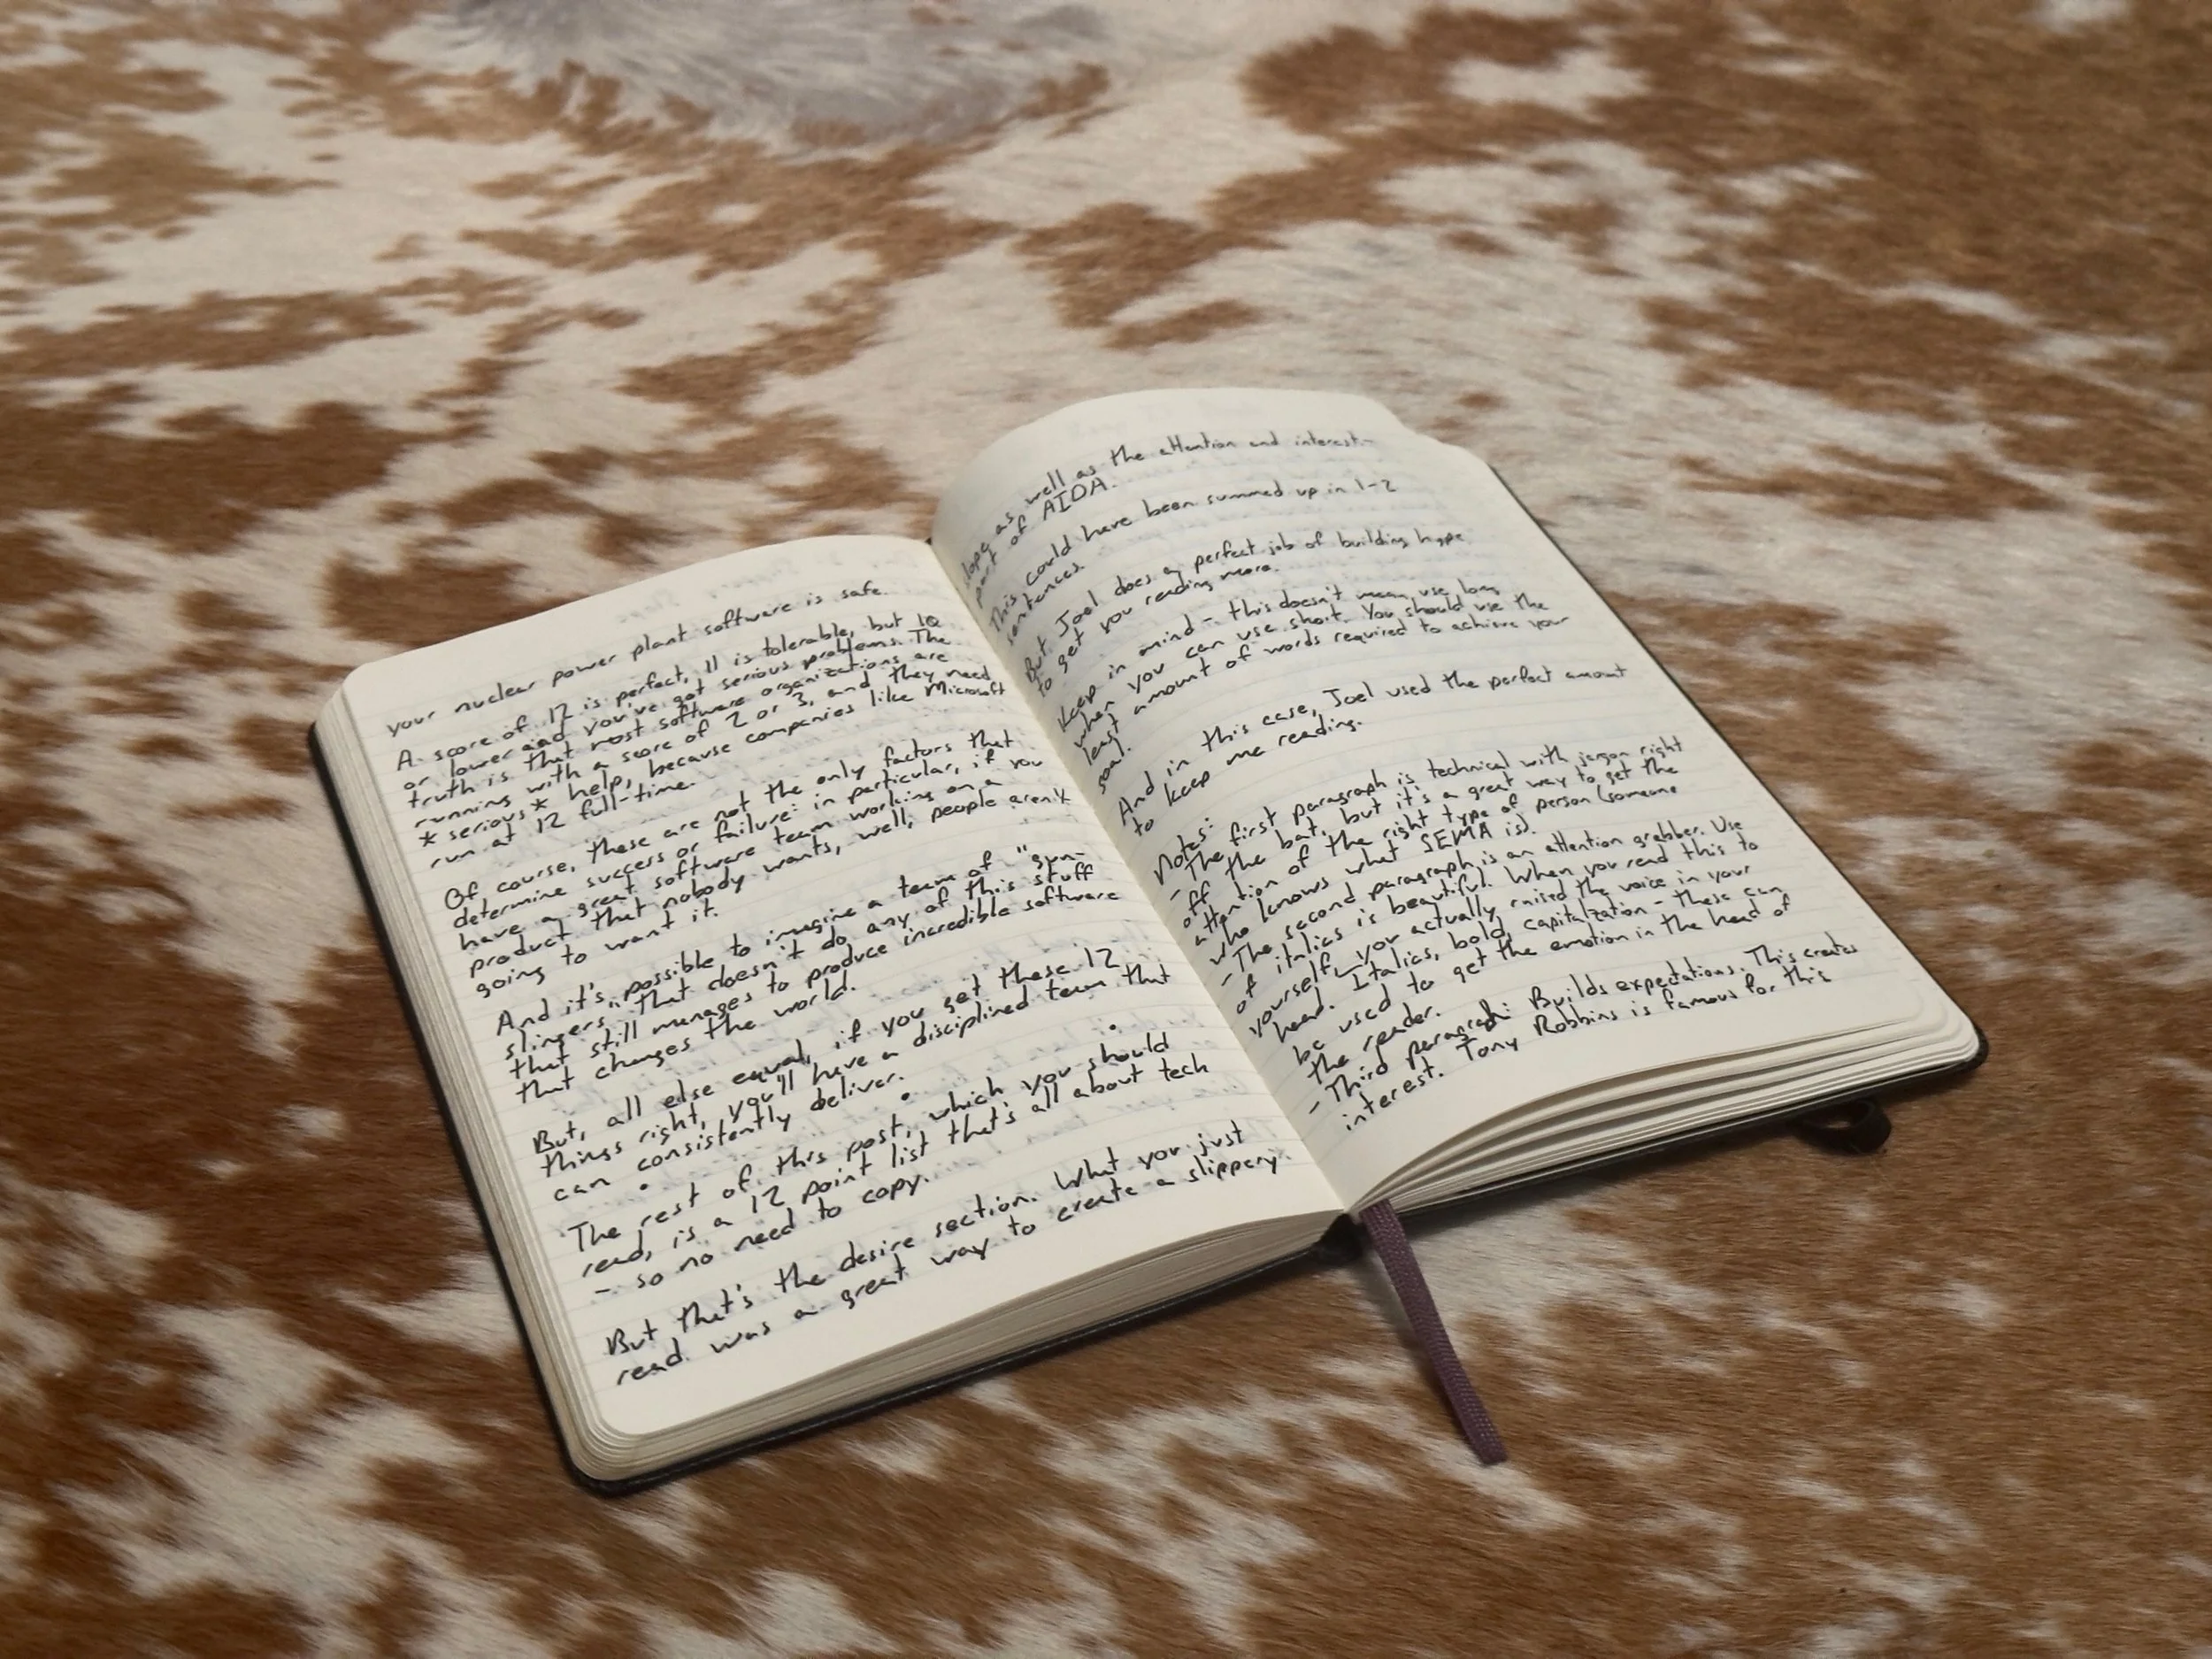 your nuclear power plant software is safe.
A score of 12 is perfect, 11 is tolerable, but 10
or lower and you've got serious problems. The
truth is that most software organizations are
running with a score of 2 or 3, and they need
* serious * help, because companies like Microsoft
run at 12 full-time.
Of course, these are not the only factors that
determine success or failure: in particular, if you
have a great software team working on a
product that nobody wants, well, people aren't
going to want it.
And it's possible to imagine a team of "gun-
slingers" that doesn't do any of this stuff
that still manages to produce incredible software
that changes the world.
But, all else equal, if you get these 12
things right, you'll have a disciplined team that
can consistently deliver.
The rest of this post, which you should
read, is a 12 point list that's all about tech
- so no need to copy.
But that's the desire section. What you just
read was a great way to create a slippery
slope as well as the attention and interest
part of AIDA.
This could have been summed up in 1-2
sentences.
But Joel does a perfect job of building hype
to get you reading more.
Keep in mind - this doesn't mean use long
when you can use short. You should use the
least amount of words required to achieve your
goal.
And in this case, Joel used the perfect amount
to keep me reading.
Notes:
- The first paragraph is technical with jargon right
off the bat, but it's a great way to get the
attention of the right type of person (someone
who knows what SEMA is).
- The second paragraph is an attention grabber. Use
of italics is beautiful. When you read this to
yourself, you actually raised the voice in your
head. Italics, bold, capitalzation - these can
be used to get the emotion in the head of
the reader.
- Third paragraph: Builds expectations. This creates
interest. Tony Robbins is famous for this